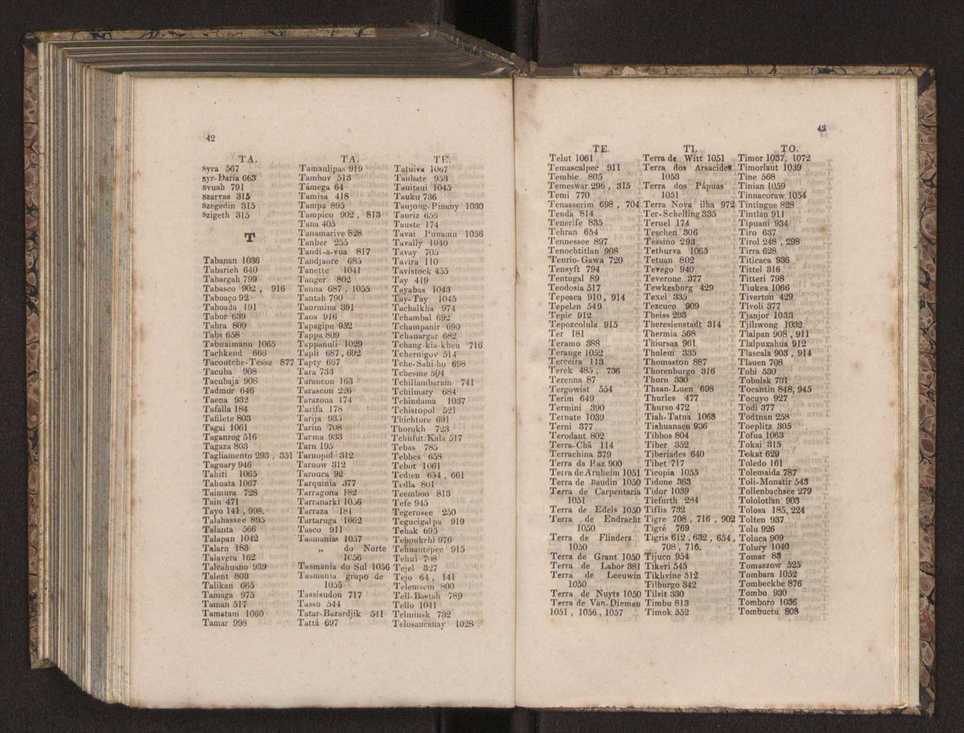 42
TA.
syra 567
syr-Daria 663
svuab 791
szarvas 315
szegedin 315
szigeth 315
T
Tabanan 1036
Tabarieh 640
Tabargah 799
Tabasco 902 , 916
Tabouço 92
Taboada 191
Tabor 639
Tabra 809
Tabs 658
Tabuaimanu 1065
Tachkend 666
Tacoutche-Tesse 877
Tacuba 908
Tacubaja 908
Tadmor 646
Taena 932
Tafalla 184
Tafilete 803
Tagai 1061
Taganrog 516
Tagaza 803
Tagliamento 293 , 351
Taguary 946
Tahiti 1065
Tahuata 1067
Taimura 728
Tain 471
Tayo 141 , 998.
Talahassee 895
Talanta 566
Talapan 1042
Talarn 183
Talavera 162
Talcahuano 939
Talent 803
Talikan 665
Tamaga 975
Taman 517
Tamatani 1060
Tamar 998
TA.
Tamaulipas 919
Tambov 513
Támega 64
Tamisa 418
Tampa 895
Tampico 902 , 813
Tana 405
Tananarive 828
Tanber 255
Tandi-a-vua 817
Tandjaore 685
Tanette 1041
Tanger 802
Tanna 687 , 1055
Tantah 790
Taormina 391
Taos 916
Tapagipe 932
Tappa 809
Tappanuli 1029
Tapti 687 , 692
Tapty 697
Tara 733
Tarancon 163
Tarascon 226
Tarazona 174
Tarifa 178
Tarija 935
Tarim 708
Tarma 933
Tarn 195
Tarnopol 312
Tarnow 312
Tarouca 92
Tarquinia 377
Tarragona 182
Tarranarki 1056
Tarraza 184
Tartaruga 1062
Tasco 911
Tasmanias 1057
„ do Norte
1056
Tasmania do Sul 1056
Tasmania grupo de
1055
Tassisudon 717
Tasso 544
Tatar-Bazardjik 541
Tattá 697
TE.
Tatuiva 1067
Taubate 953
Tauitani 1045
Tauku 736
Taujong-Pimany 1030
Tauriz 656
Tauste 174
Tavai Punamu 1056
Tavally 1040
Tavay 705
Tavira 110
Tavistock 455
Tay 419
Tayabas 1043
Tay-Tay 1045
Tachalkha 974
Tchambal 692
Tchampanir 690
Tchanargar 682
Tchang-kia-kheu 716
Tchernigov 514
Tche-Sabi-ho 698
Tchesme 504
Tchillambaram 741
Tchilmary 684
Tchindama 1037
Tchistopol 521
Thichtore 691
Thorukh 723
Tchufut-Kala 517
Tebas 785
Tebhes 658
Tebot 1061
Tedjen 654 , 661
Tedla 801
Teembou 813
Tefe 945
Tegernsee 250
Tegucigalpa 919
Tehak 695
Tehoukrhl 976
Tehuantepec 915
Tehui 708
Tejel 327
Tejo 64 , 141
Telemsen 800
Tell-Bastah 789
Tello 1041
Telmusk 732
Telosaucanay 1028
43
TE.
Telut 1061
Temascalpec 911
Tembie 805
Temeswar 296 , 315
Temi 770
Tenasserim 698 , 704
Tenda 814
Tenerife 835
Tehran 654
Tennessee 897
Tenochtitlan 908
Tenrio-Gawa 720
Tensyft 794
Tentogal 89
Teodosia 517
Tepeaca 910 , 914
Tepelen 549
Tepic 912
Tepozcolula 915
Ter 181
Teramo 388
Terange 1052
Terceira 113
Terek 485 , 736
Terenna 87
Tergowist 554
Terim 649
Termini 390
Ternate 1039
Terni 377
Terodant 802
Terra-Chã 114
Terrachina 379
Terra da Paz 900
Terra de Arnheim 1051
Terra de Baudin 1050
Terra de Carpentaria
1051
Terra de Edels 1050
Terra de Endracht
1050
Terra de Flinders
1050
Terra de Grant 1050
Terra de Labor 381
Terra de Leeuwin
1050
Terra de Nuyts 1050
Terra de Van-Dieman
1051 , 1056 , 1057
TI.
Terra de Witt 1051
Terra dos Arsacides
1053
Terra dos Pápuas
1051
Terra Nova ilha 972
Ter-Schelling 335
Teruel 174
Teschen 306
Tessino 293
Tethurva 1063
Tetuan 802
Tevego 940
Teverone 377
Tewkesburg 429
Texel 335
Tezcuco 909
Theiss 293
Theresienstadt 314
Thermia 568
Thiursas 961
Tholeni 335
Thomaston 887
Thorenburgo 316
Thorn 330
Thsan-Luen 698
Thurles 477
Thurso 472
Tiah-Tatua 1068
Tiahuanacu 936
Tibbos 804
Tiber 352
Tiberiades 640
Tibet 717
Ticopia 1053
Tidone 383
Tidor 1039
Tiefurth 284
Tiflis 732
Tigre 708 , 716 , 902
Tigré 769
Tigris 612 , 632 , 654 ,
708 , 716.
Tijuco 954
Tikeri 545
Tikhvine 512
Tilburgo 342
Tilsit 330
Timbu 813
Timok 552
TO.
Timor 1037, 1072
Timorlaut 1039
Tine 568
Tinian 1059
Tinnacoraw 1054
Tintingue 828
Tintlan 911
Tipuani 934
Tiro 637
Tirol 248 , 298
Tirra 628
Titicaca 936
Tittel 316
Titteri 798
Tiukea 1066
Tiverton 429
Tivoli 377
Tjanjor 1033
Tjiliwong 1032
Tlalpan 908 , 911
Tlalpuxahua 912
Tlascala 903 , 914
Tlauen 708
Tobi 530
Tobolsk 731
Tocantin 848, 945
Tocuyo 927
Todi 377
Todtnan 258
Toeplitz 305
Tofua 1063
Tokai 315
Tokat 629
Toledo 161
Tolemaida 787
Toli-Monatir 543
Tollenbuchsee 279
Tololotlan 903
Tolosa 185, 224
Tolten 937
Tolu 926
Toluca 909
Tolury 1040
Tomar 83
Tomaszow 525
Tombara 1052
Tombeckbe 876
Tombo 930
Tomboro 1036
Tombuctu 808